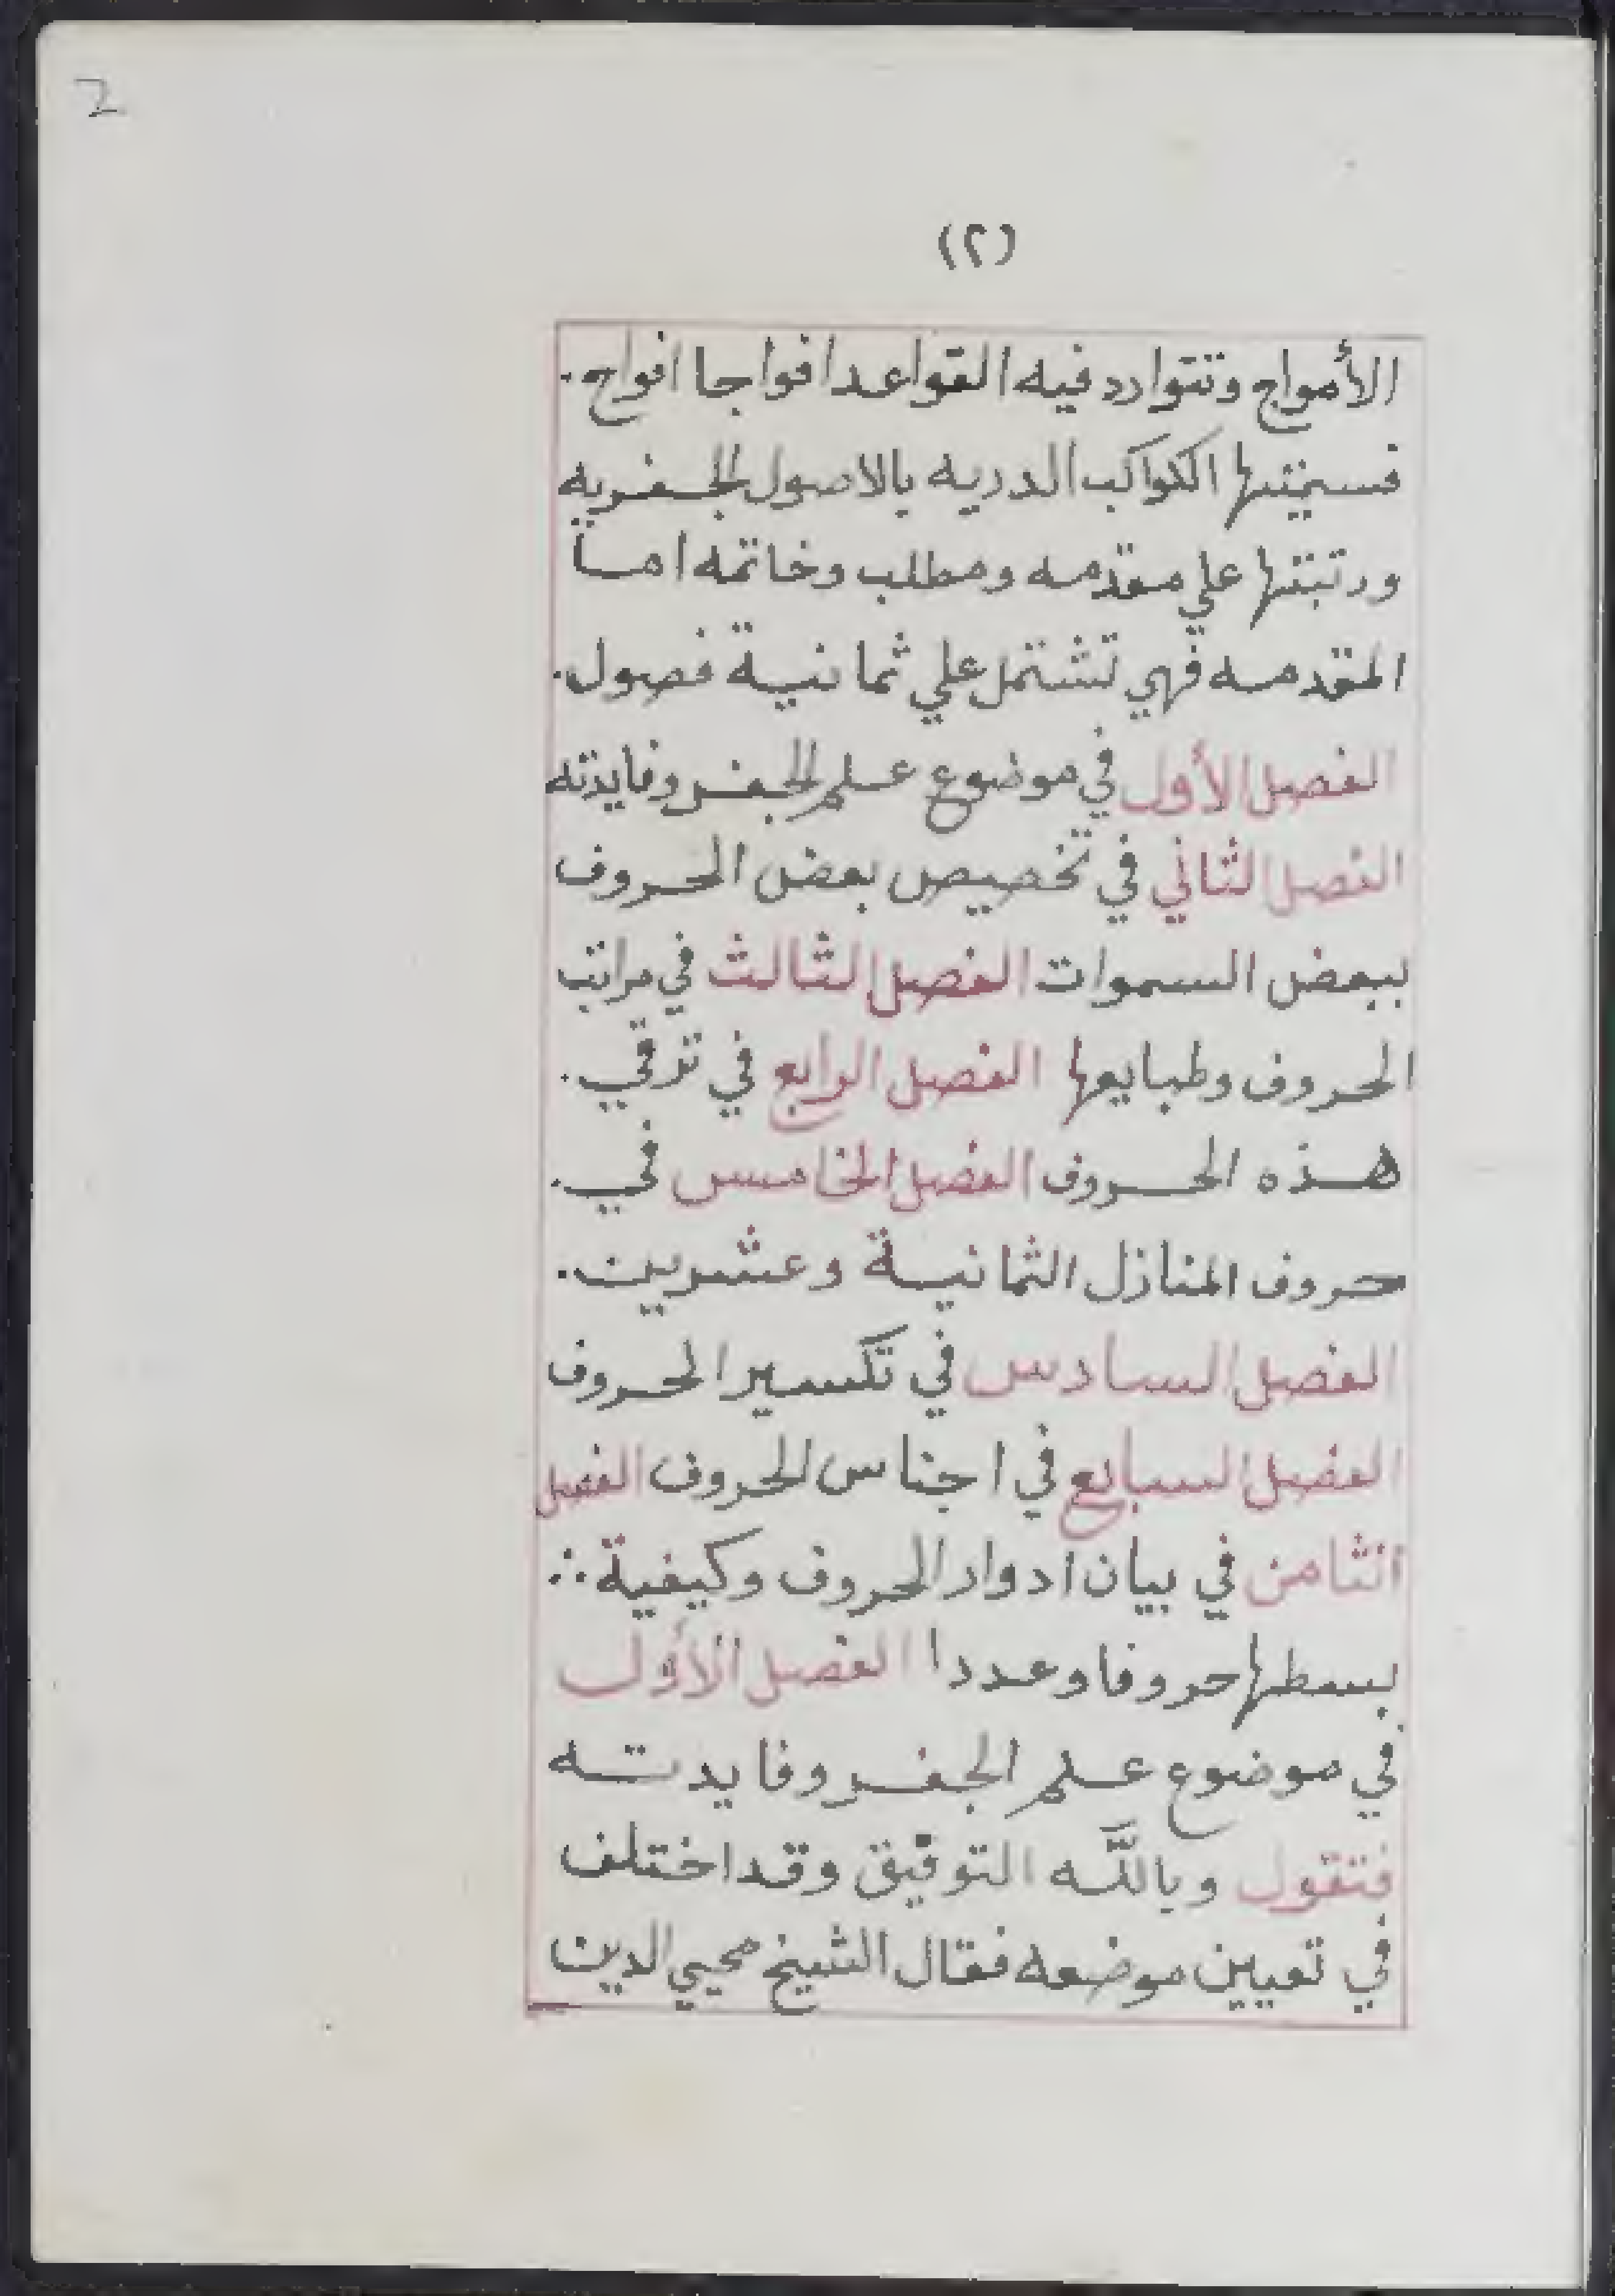 2
(٢)
الأمواج وتتوارد فيه القواعد افواجا افواج.
فسميتها الكواكب الدريه بالاصول الجفريه
ورتبتها علي مقدمه ومطلب وخاتمه اما
المقدمه فهي تشتمل علي ثمانية فصول.
الفصل الأول في موضوع علم الجفر وفايدته
الفصل الثاني في تخصيص بعض الحروف
ببعض السموات الفصل الثالث في مراتب
الحروف وطبايعها الفصل الرابع في ترقي.
هذه الحروف الفصل الخامس في.
حروف المنازل الثمانية وعشرين.
الفصل السادس في تكسير الحروف
الفصل السابع في اجناس الحروف الفصل
الثامن في بيان ادوار الحروف وكيفية ∴
بسطها حروفا وعددا الفصل الأول
في موضوع علم الجفر وفايدته
فنقول وبالله التوفيق وقد اختلف
في تعيين موضعه فقال الشيخ محيي الدين